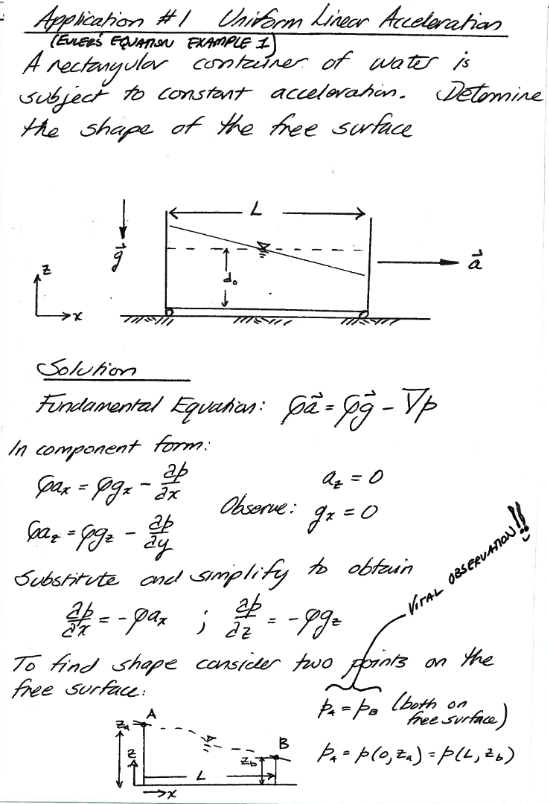 Application #1 Uniform Linear Acceleration
(EULER'S EQUATION EXAMPLE I)
A rectangular container of water is
subject to constant acceleration. Determine
the shape of the free surface
L
g⃗
a⃗
d₀
z
x
Solution
Fundamental Equation: ρa⃗ = ρg⃗ - ∇p
In component form:
ρaₓ = ρgₓ - ∂p/∂x
a_z = 0
Observe: gₓ = 0
ρa_z = ρg_z - ∂p/∂y
Substitute and simplify to obtain
∂p/∂x = -ρaₓ ; ∂p/∂z = -ρg_z
VITAL OBSERVATION!!
To find shape consider two points on the
free surface:
p_A = p_B (both on free surface)
p_A = p(0, z_a) = p(L, z_b)
z_a
A
B
z
z_b
L
x